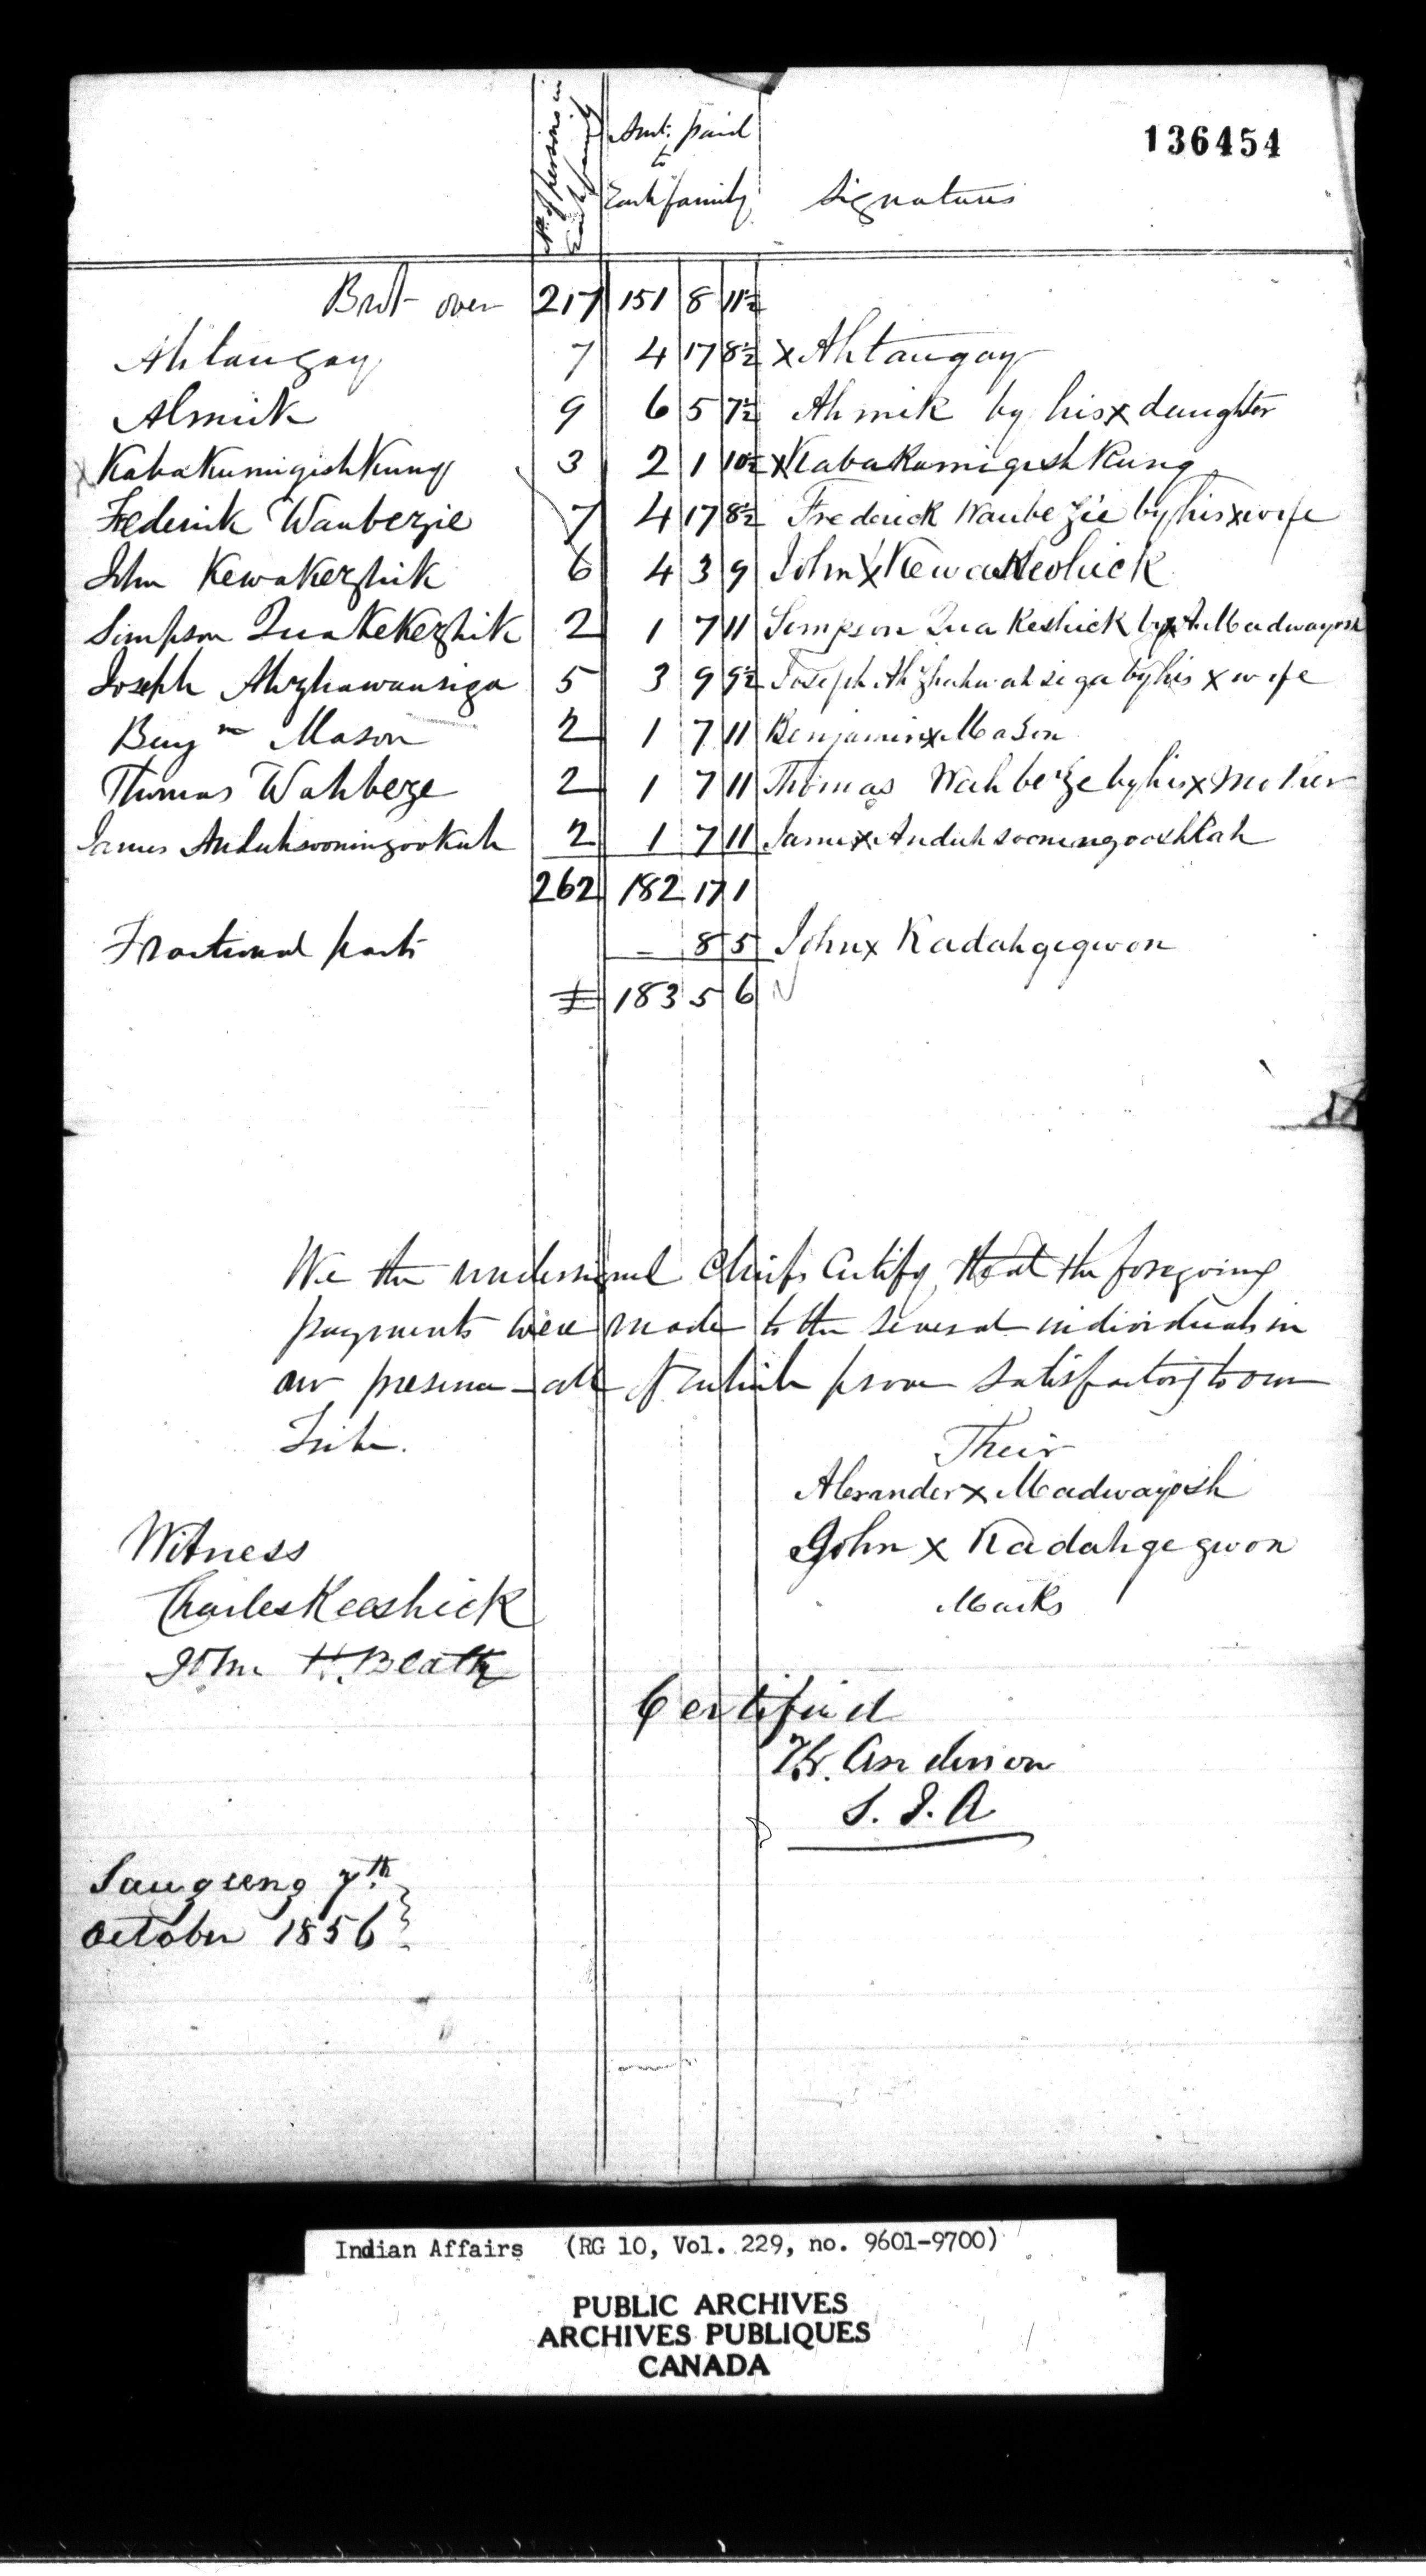 136454
No. of persons in Each family
Amt. paid to Each family
Signatures
Brot over 217 151 8 11½
Ahtaugay 7 4 17 8½ x Ahtaugay
Ahmik 9 6 5 7½ Ahmik by his x daughter
x Kabakumigishkung 3 2 1 10½ x Kabakamigishkung
Frederick Waubezie 7 4 17 8½ Frederick Waubezie by his x wife
John Kewakezhik 6 4 3 9 John x Kewakeshick
Simpson Quakekezhik 2 1 7 11 Simpson Quakeshick by x A. Madwayosh
Joseph Ahzhawausiga 5 3 9 9½ Joseph Ahzhahwahsiga by his x wife
Benj m Mason 2 1 7 11 Benjamin x Mason
Thomas Wahbeze 2 1 7 11 Thomas Wahbeze by his x Mother
James Anduhsooningookuh 2 1 7 11 James x Anduhsooningooshkah
262 182 17 1
Fractional parts – 8 5 John x Kadahgegwon
£ 183 5 6
We the undersigned Chiefs Certify that the foregoing
payments were made to the several individuals in
our presence – all of which prove satisfactory to our
Tribe.
Their
Alexander x Madwayosh
John x Kadahgegwon
Marks
Witness
Charles Keeshick
John H. Beatty
Certified
T.G. Anderson
S. I. A
Saugeeng 7th
October 1856
Indian Affairs (RG 10, Vol. 229, no. 9601-9700)
PUBLIC ARCHIVES
ARCHIVES PUBLIQUES
CANADA